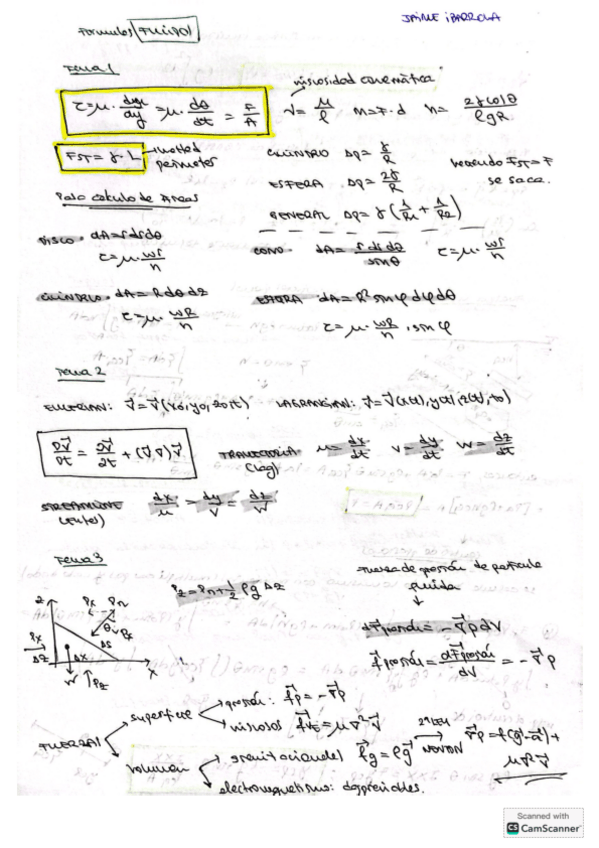 JAIME IBARROLA
Formulas FLUIDOS
Tema 1
viscosidad cinemática
τ = μ · du/dy = μ · dθ/dt = F/A
ν = μ/ρ M = F · d h = 2γcosθ/ρgR
FST = γ · L wetted perimeter
CILINDRO Δp = γ/R
ESFERA Δp = 2γ/R
GENERAL Δp = γ(1/R1 + 1/R2)
haciendo FST = F
se saca.
Para calculo de Areas
DISCO · dA = r dr dθ
τ = μ · wr/h
CONO · dA = r dr dθ/sinθ τ = μ · wr/h
CILINDRO · dA = R dθ dz
τ = μ · wR/h
ESFERA dA = R² sinφ dφ dθ
τ = μ · wR/h · sin φ
Tema 2
EULERIAN: V = V(x0, y0, z0, t) LAGRANGIAN: V = V(x(t), y(t), z(t), t0)
DV/Dt = ∂V/∂t + (V·∇)V
TRAYECTORIA (Lag) u = dx/dt v = dy/dt w = dz/dt
STREAMLINE dx/u = dy/v = dz/w
Tema 3
Pz = Pn + 1/2 ρg Δz
fuerza de presión de particula
fluida
dF presión = -∇p dV
f presión = dF presión/dV = -∇p
z Px Pn
θ Px
Px Δz Δx ΔS
W Pz x
FUERZAS
superficie
presión: fp = -∇p
viscosas fvis = μ∇²V
volumen
gravitacionales fg = ρg
electromagnetismo: despreciables.
2ª LEY NEWTON
∇p = ρ(g - a) +
μ∇²V
Scanned with
CS CamScanner